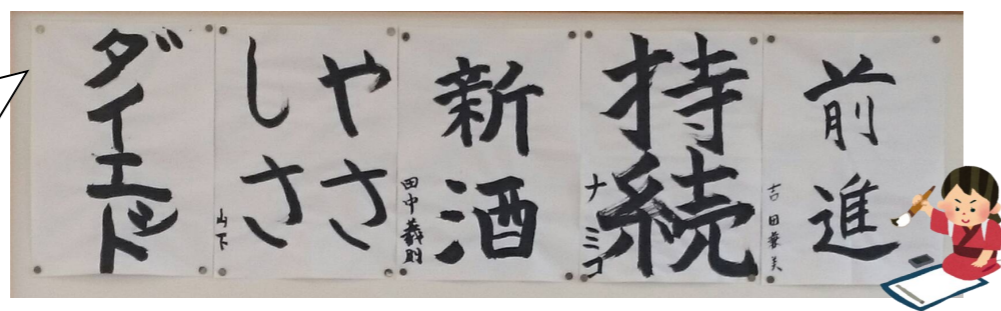 前進
吉田
持続
ナミコ
新酒
田中義則
やさ
しさ
山下
ダイエット